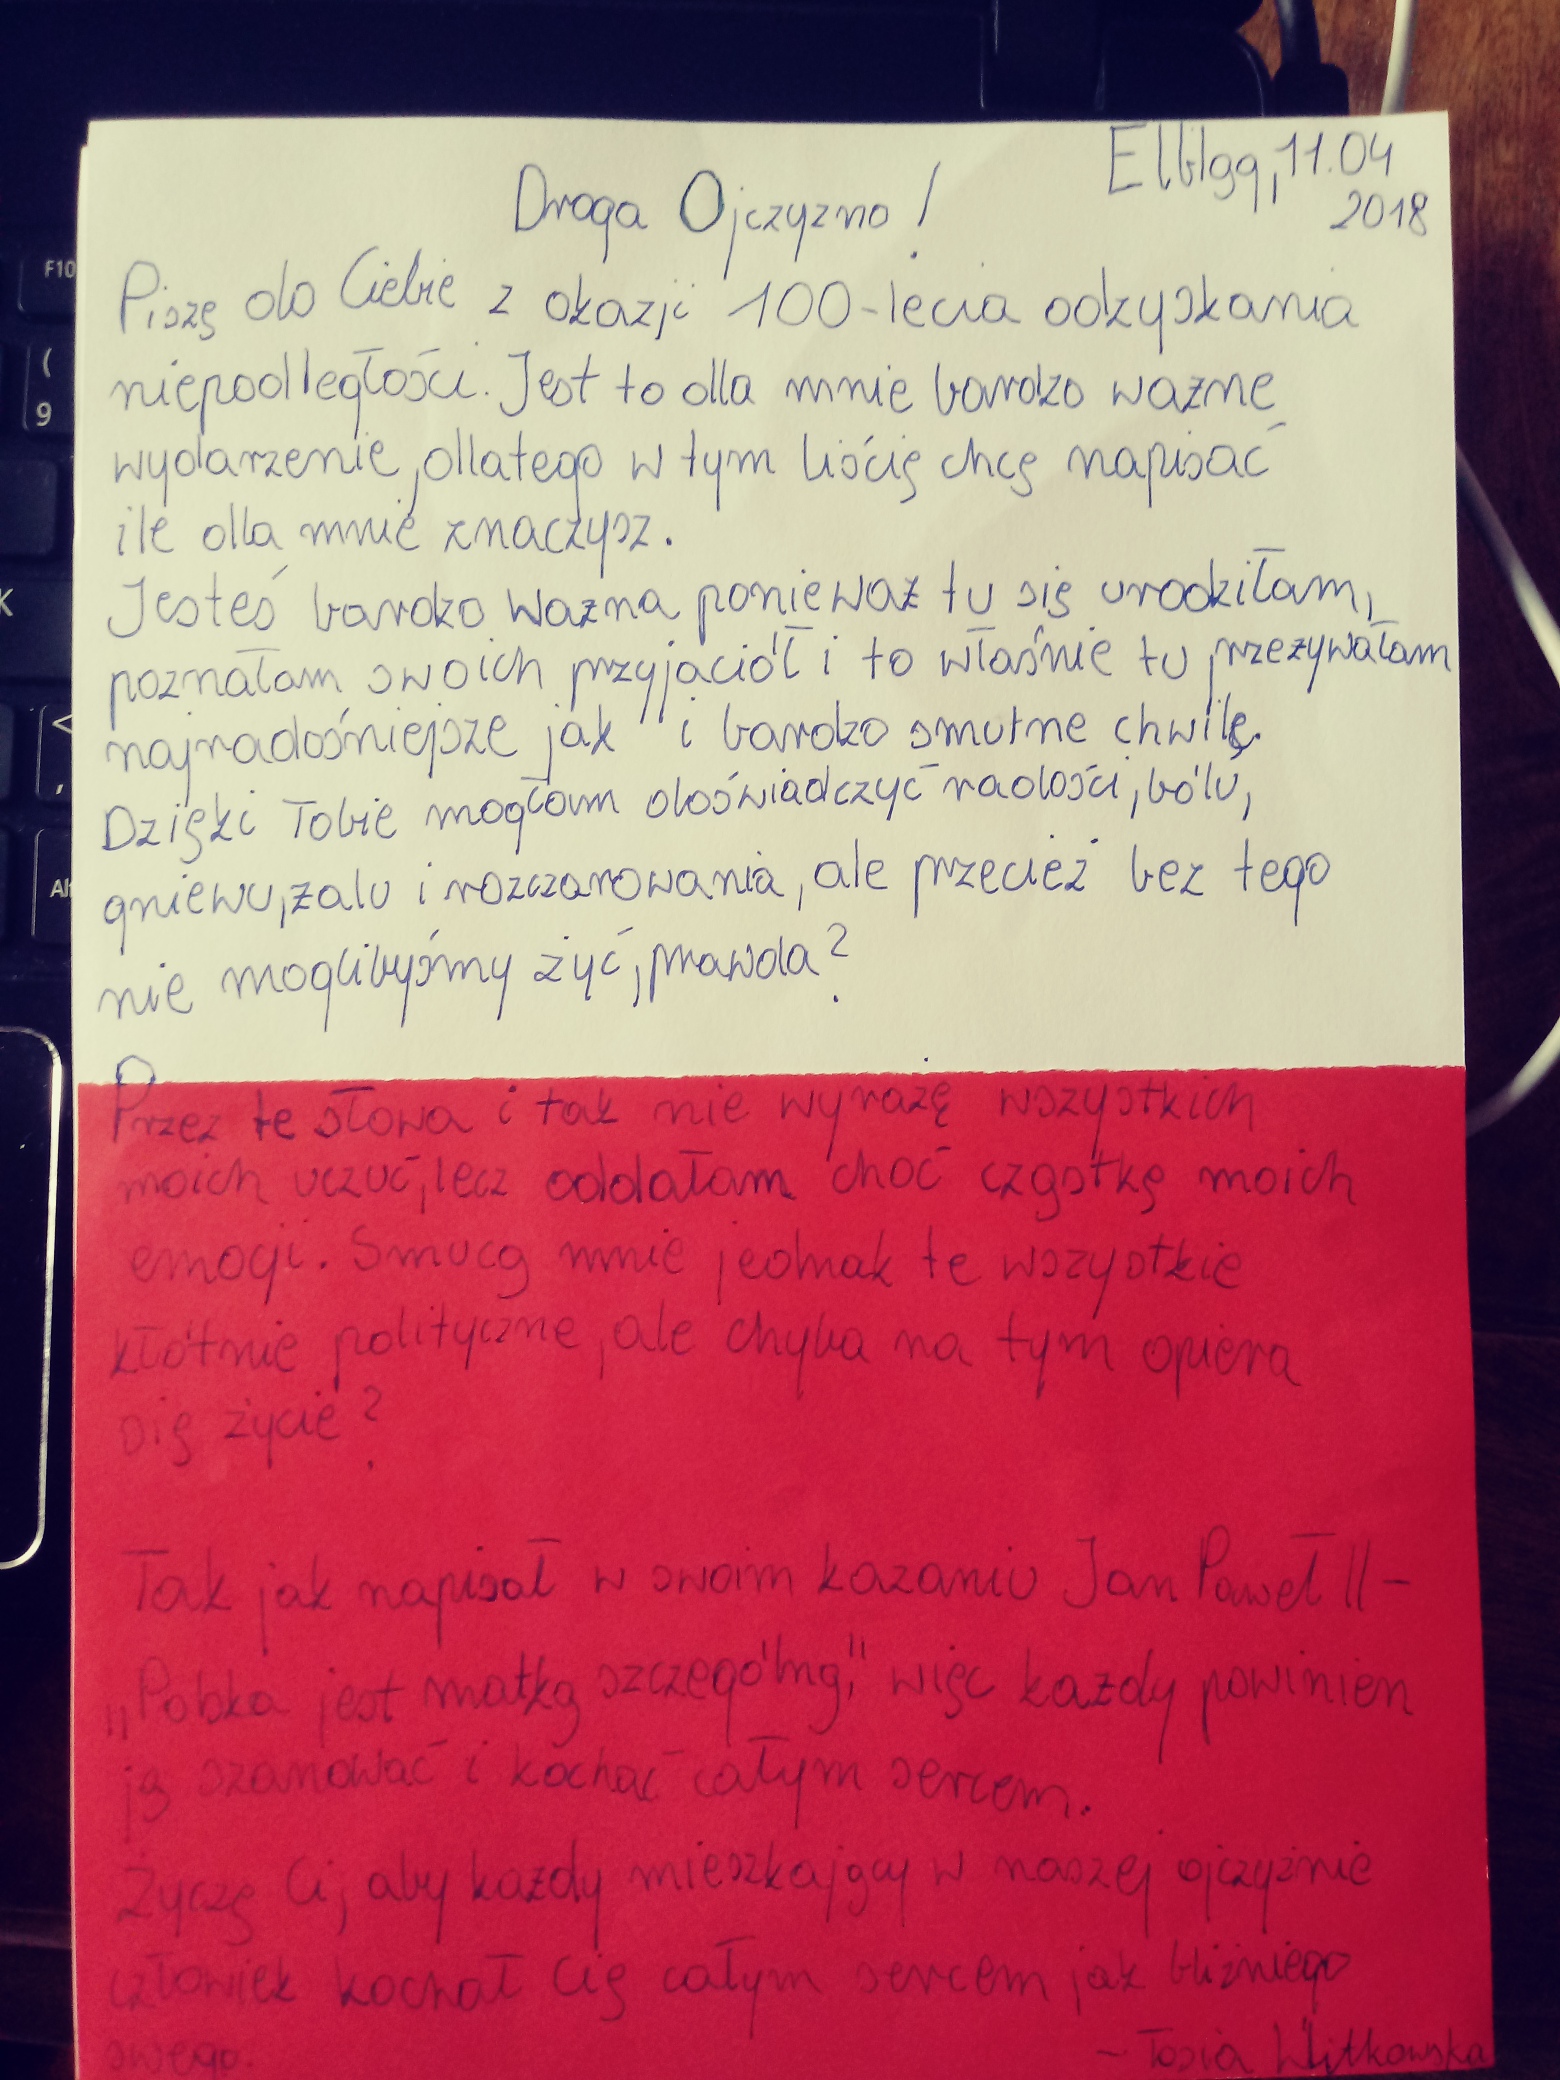 Elbląg, 11.04
2018
Droga Ojczyzno!
Piszę do Ciebie z okazji 100-lecia odzyskania
niepodległości. Jest to dla mnie bardzo ważne
wydarzenie, dlatego w tym liścię chcę napisać
ile dla mnie znaczysz.
Jesteś bardzo ważna ponieważ tu się urodziłam,
poznałam swoich przyjaciół i to właśnie tu przeżywałam
najradośniejsze jak i bardzo smutne chwilę.
Dzięki Tobie mogłam doświadczyć radości, bólu,
gniewu, żalu i rozczarowania, ale przecież bez tego
nie moglibyśmy żyć, prawda?
Przez te słowa i tak nie wyrażę wszystkich
moich uczuć, lecz oddałam choć cząstkę moich
emocji. Smucą mnie jednak te wszystkie
kłótnie polityczne, ale chyba na tym opiera
się życie?
Tak jak napisał w swoim kazaniu Jan Paweł II -
„Polska jest matką szczególną," więc każdy powinien
ją szanować i kochać całym sercem.
Życzę Ci, aby każdy mieszkający w naszej ojczyźnie
człowiek kochał Cię całym sercem jak bliźniego
swego.
- Tosia Witkowska
F10
(
9
K
<
,
Al